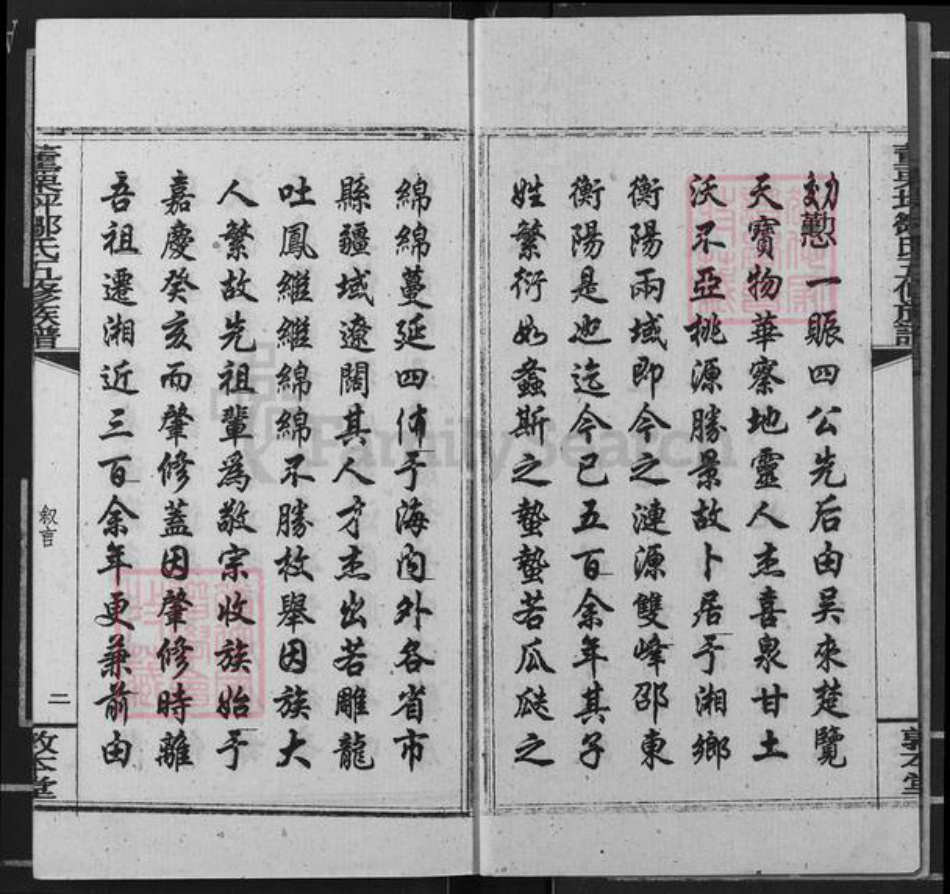 効懃一賑四公先后由吴來楚覽
天寶物華察地靈人杰喜泉甘土
沃不亞桃源勝景故卜居于湘鄉
衡陽兩域即今之漣源雙峰邵東
衡陽是也迄今已五百余年其子
姓繁衍如螽斯之蟄蟄若瓜瓞之
綿綿蔓延四佈于海内外各省市
縣疆域遼闊其人才杰出若雕龍
吐鳳繼繼綿綿不勝枚舉因族大
人繁故先祖輩爲敬宗收族始于
嘉慶癸亥而肇修蓋因肇修時離
吾祖遷湘近三百余年更兼前由
叙言
二
氏五修族譜
Family Search